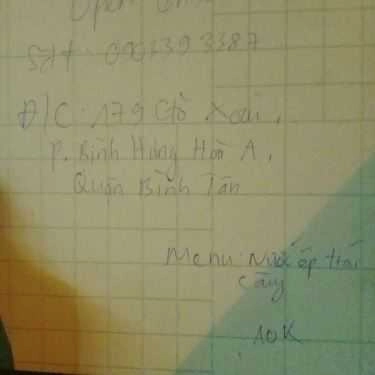 Open
SĐT : 0903393387
Đ/C : 179 Gò Xoài,
P. Bình Hưng Hoà A,
Quận Bình Tân
Menu: Nước ép trái
cây
10K